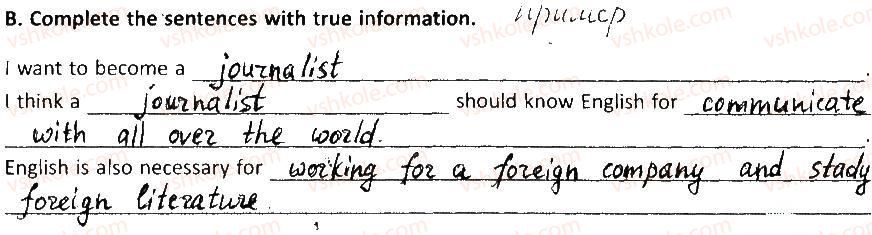 B. Complete the sentences with true information. пример
I want to become a journalist.
I think a journalist should know English for communicate
with all over the world.
English is also necessary for working for a foreign company and stady
foreign literature.